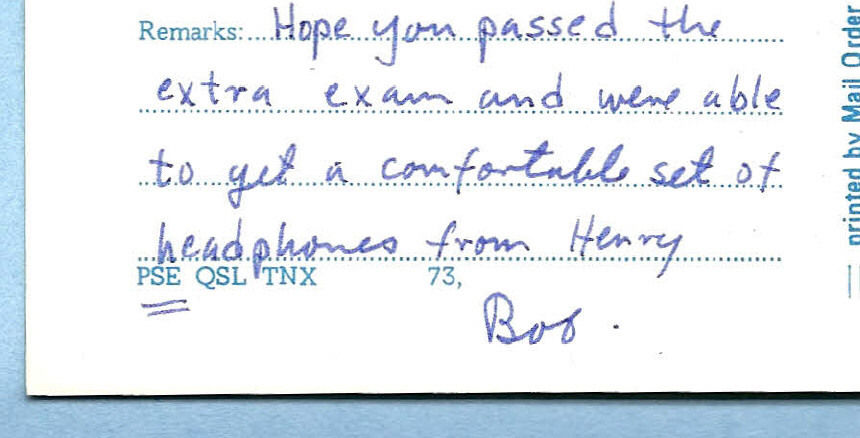 Remarks: Hope you passed the
extra exam and were able
to get a comfortable set of
headphones from Henry
PSE QSL TNX 73,
Bob.
printed by Mail Order